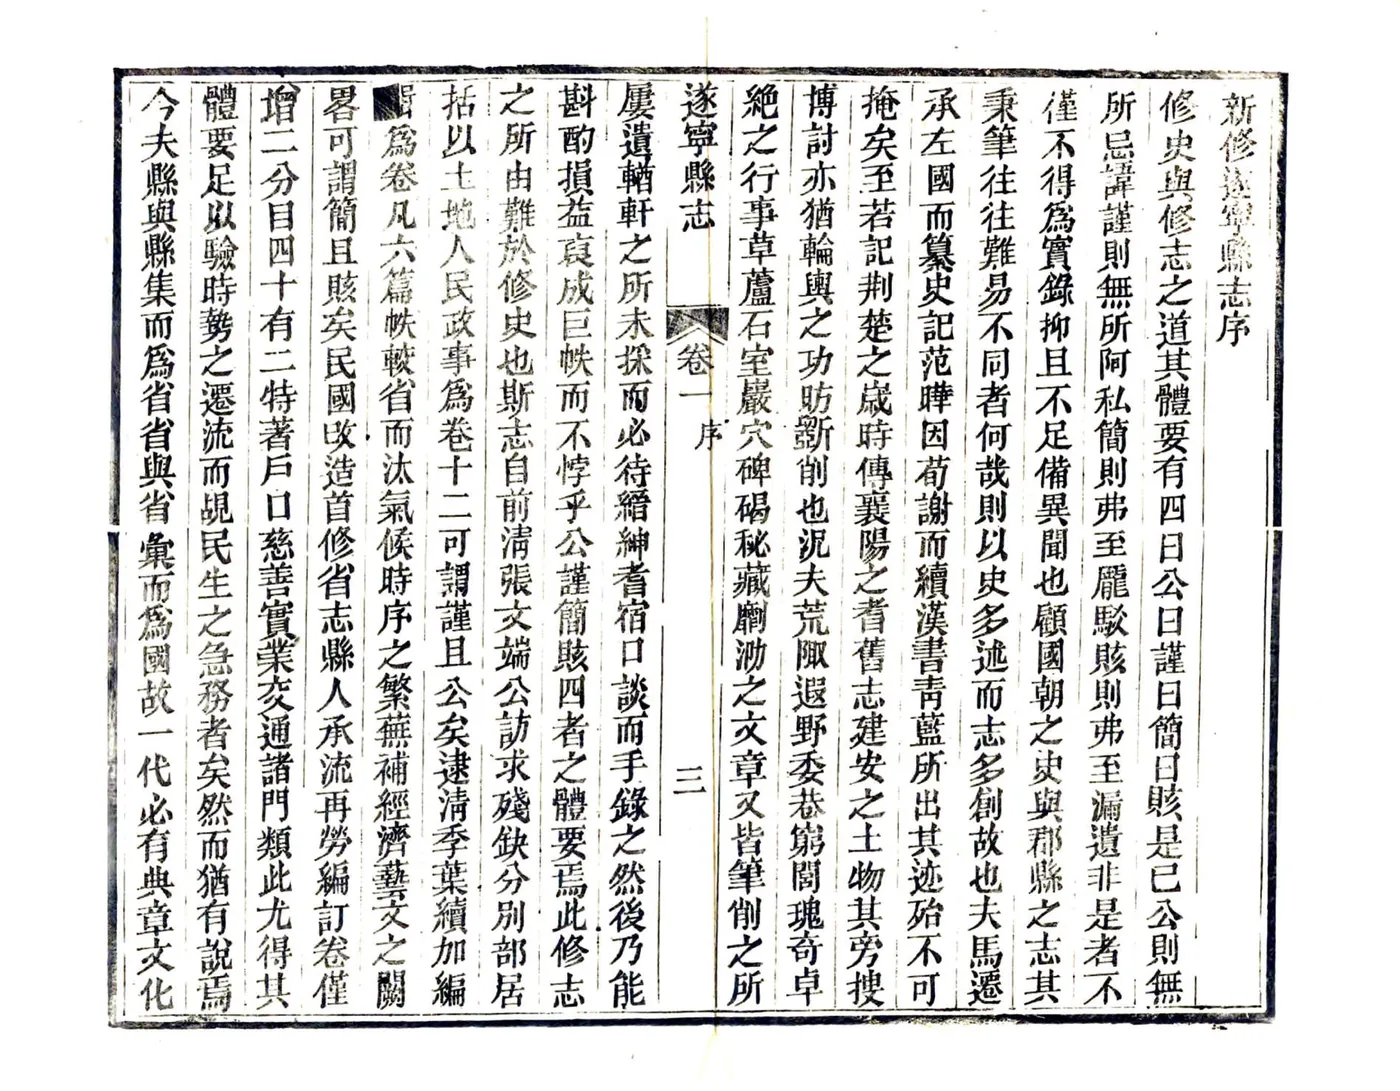 新修遂寧縣志序
修史與修志之道其體要有四曰公曰謹曰簡曰賅是已公則無
所忌諱謹則無所阿私簡則弗至龐駁賅則弗至漏遺非是者不
僅不得爲實錄抑且不足備異聞也顧國朝之史與郡縣之志其
秉筆往往難易不同者何哉則以史多述而志多創故也夫馬遷
承左國而纂史記范曄因荀謝而續漢書靑藍所出其迹殆不可
掩矣至若記荆楚之歲時傳襄陽之耆舊志建安之土物其旁搜
博討亦猶輪輿之功昉斵削也況夫荒陬遐野委巷窮閭瑰奇卓
絶之行事草蘆石室巖穴碑碣秘藏劘泐之文章又皆筆削之所
遂寧縣志
卷一
序
三
屢遺輶軒之所未採而必待縉紳耆宿口談而手錄之然後乃能
斟酌損益裒成巨帙而不悖乎公謹簡賅四者之體要焉此修志
之所由難於修史也斯志自前淸張文端公訪求殘缺分別部居
括以土地人民政事爲卷十二可謂謹且公矣逮淸季葉續加編
爲卷凡六篇帙較省而汰氣候時序之繁蕪補經濟藝文之闕
畧可謂簡且賅矣民國改造首修省志縣人承流再勞編訂卷僅
增二分目四十有二特著戶口慈善實業交通諸門類此尤得其
體要足以驗時勢之遷流而覘民生之急務者矣然而猶有說焉
今夫縣與縣集而爲省省與省彙而爲國故一代必有典章文化